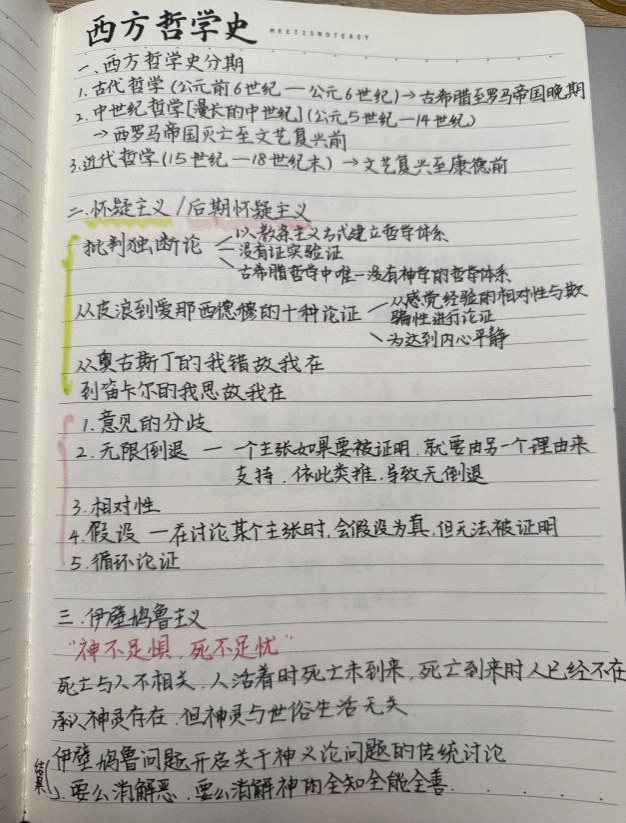 西方哲学史 MEETISNOTEASY
一、西方哲学史分期
1.古代哲学(公元前6世纪—公元6世纪)→古希腊至罗马帝国晚期
2.中世纪哲学[漫长的中世纪](公元5世纪—14世纪)
→西罗马帝国灭亡至文艺复兴前
3.近代哲学(15世纪—18世纪末)→文艺复兴至康德前
二.怀疑主义/后期怀疑主义
以教条主义方式建立哲学体系
批判独断论
没有证实验证
古希腊哲学中唯一没有神学的哲学体系
从感觉经验的相对性与欺
从皮浪到爱那西德穆的十种论证
骗性进行论证
为达到内心平静
从奥古斯丁的我错故我在
到笛卡尔的我思故我在
1.意见的分歧
2.无限倒退 — 一个主张如果要被证明,就要由另一个理由来
支持.依此类推.导致无倒退
3.相对性
4.假设 —在讨论某个主张时,会假设为真,但无法被证明
5.循环论证
三.伊壁鸠鲁主义
"神不足惧,死不足忧"
死亡与人不相关.人活着时死亡未到来,死亡到来时人已经不在
承认神灵存在.但神灵与世俗生活无关
伊壁鸠鲁问题开启关于神义论问题的传统讨论
结果 要么消解恶.要么消解神的全知全能全善.